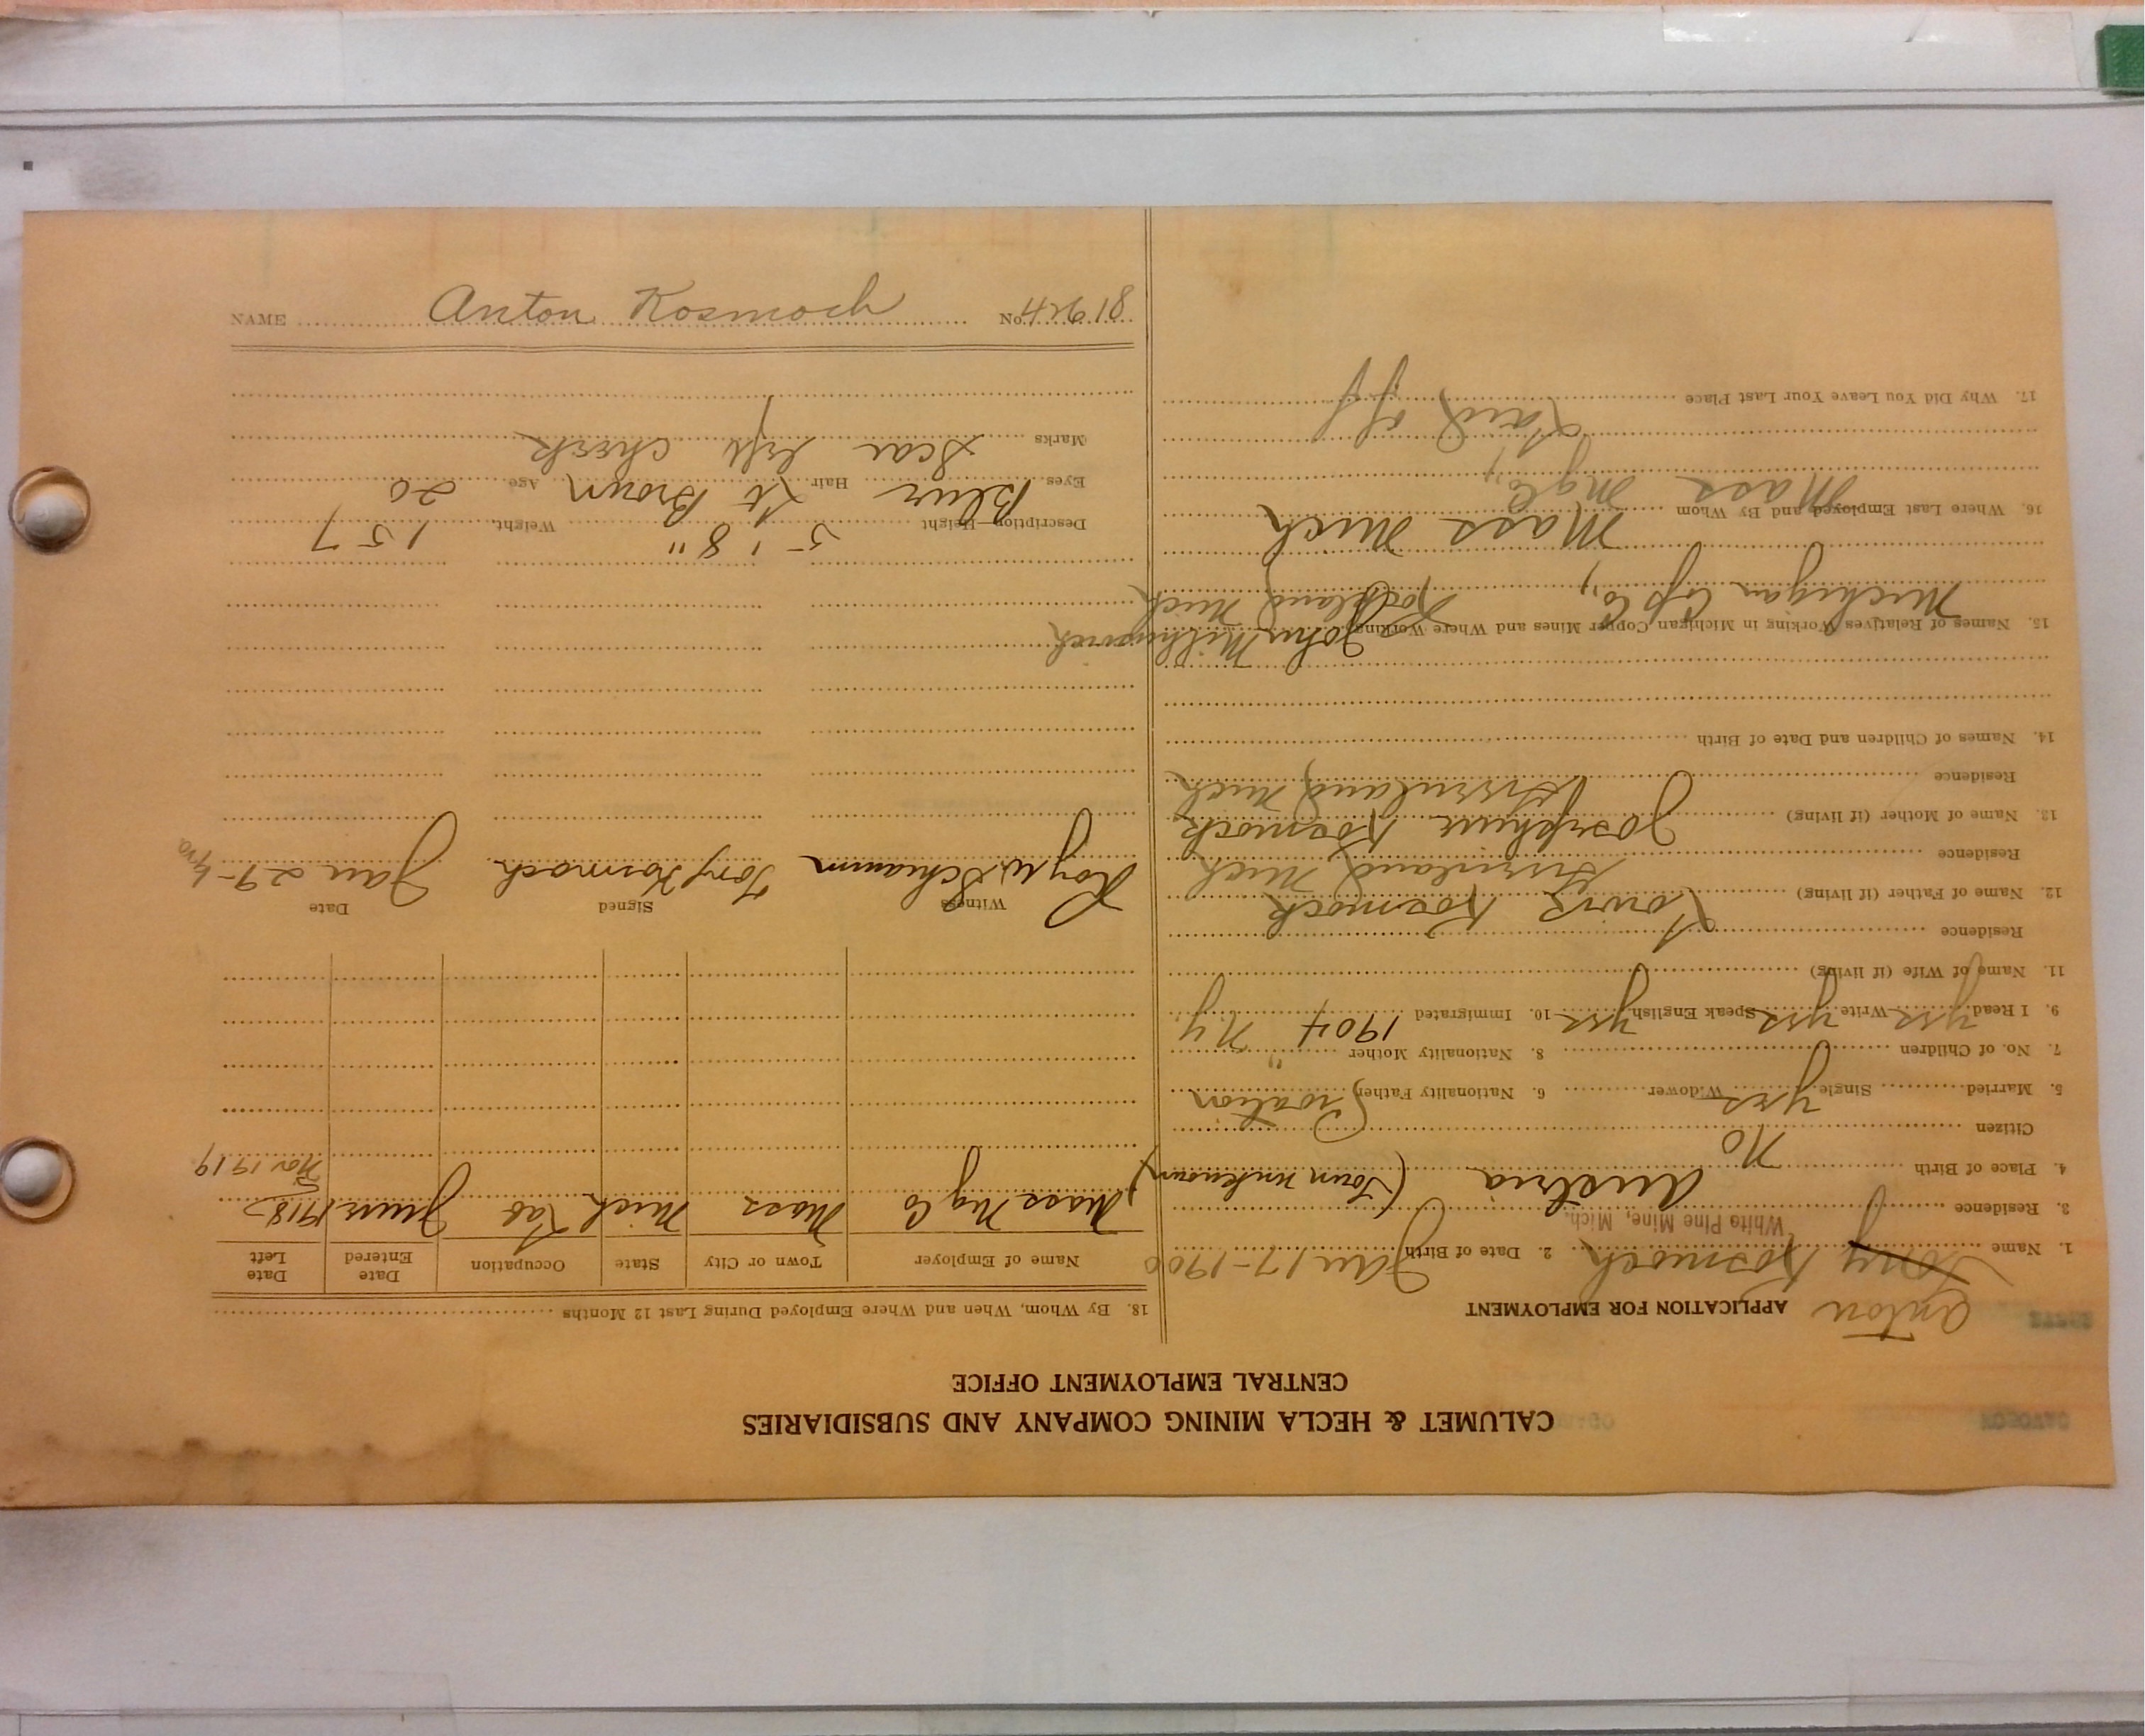 CALUMET & HECLA MINING COMPANY AND SUBSIDIARIES
CENTRAL EMPLOYMENT OFFICE
APPLICATION FOR EMPLOYMENT
Anton
1. Name Tony Kosmoch 2. Date of Birth Jan 17-1900
3. Residence White Pine Mine, Mich.
4. Place of Birth Austria (Town unknown)
Citizen No
5. Married Single yes Widower 6. Nationality Father Croation
7. No. of Children 8. Nationality Mother "
9. I Read yes Write yes Speak English yes 10. Immigrated 1904 N.Y.
11. Name of Wife (if living)
Residence
12. Name of Father (if living) Louis Kosmoch
Residence Greenland Mich
13. Name of Mother (if living) Josephine Kosmoch
Residence Greenland Mich
14. Names of Children and Date of Birth
15. Names of Relatives Working in Michigan Copper Mines and Where Working John
Michigan Cop Co., Rockland Mich
16. Where Last Employed and By Whom Mass Mich
Mass Mg Co.,
17. Why Did You Leave Your Last Place Laid off
18. By Whom, When and Where Employed During Last 12 Months
Name of Employer Town or City State Occupation Date Entered Date Left
Mass Mg Co Mass Mich Lab June 1918 Nov 1919
Witness Signed Date
Roy W. Schaum Tony Kosmoch Jan 29-1920
Description—Height 5' 8" Weight 157
Eyes Blue Hair Lt Brown Age 20
Marks Scar left cheek
NAME Anton Kosmoch No. 42618